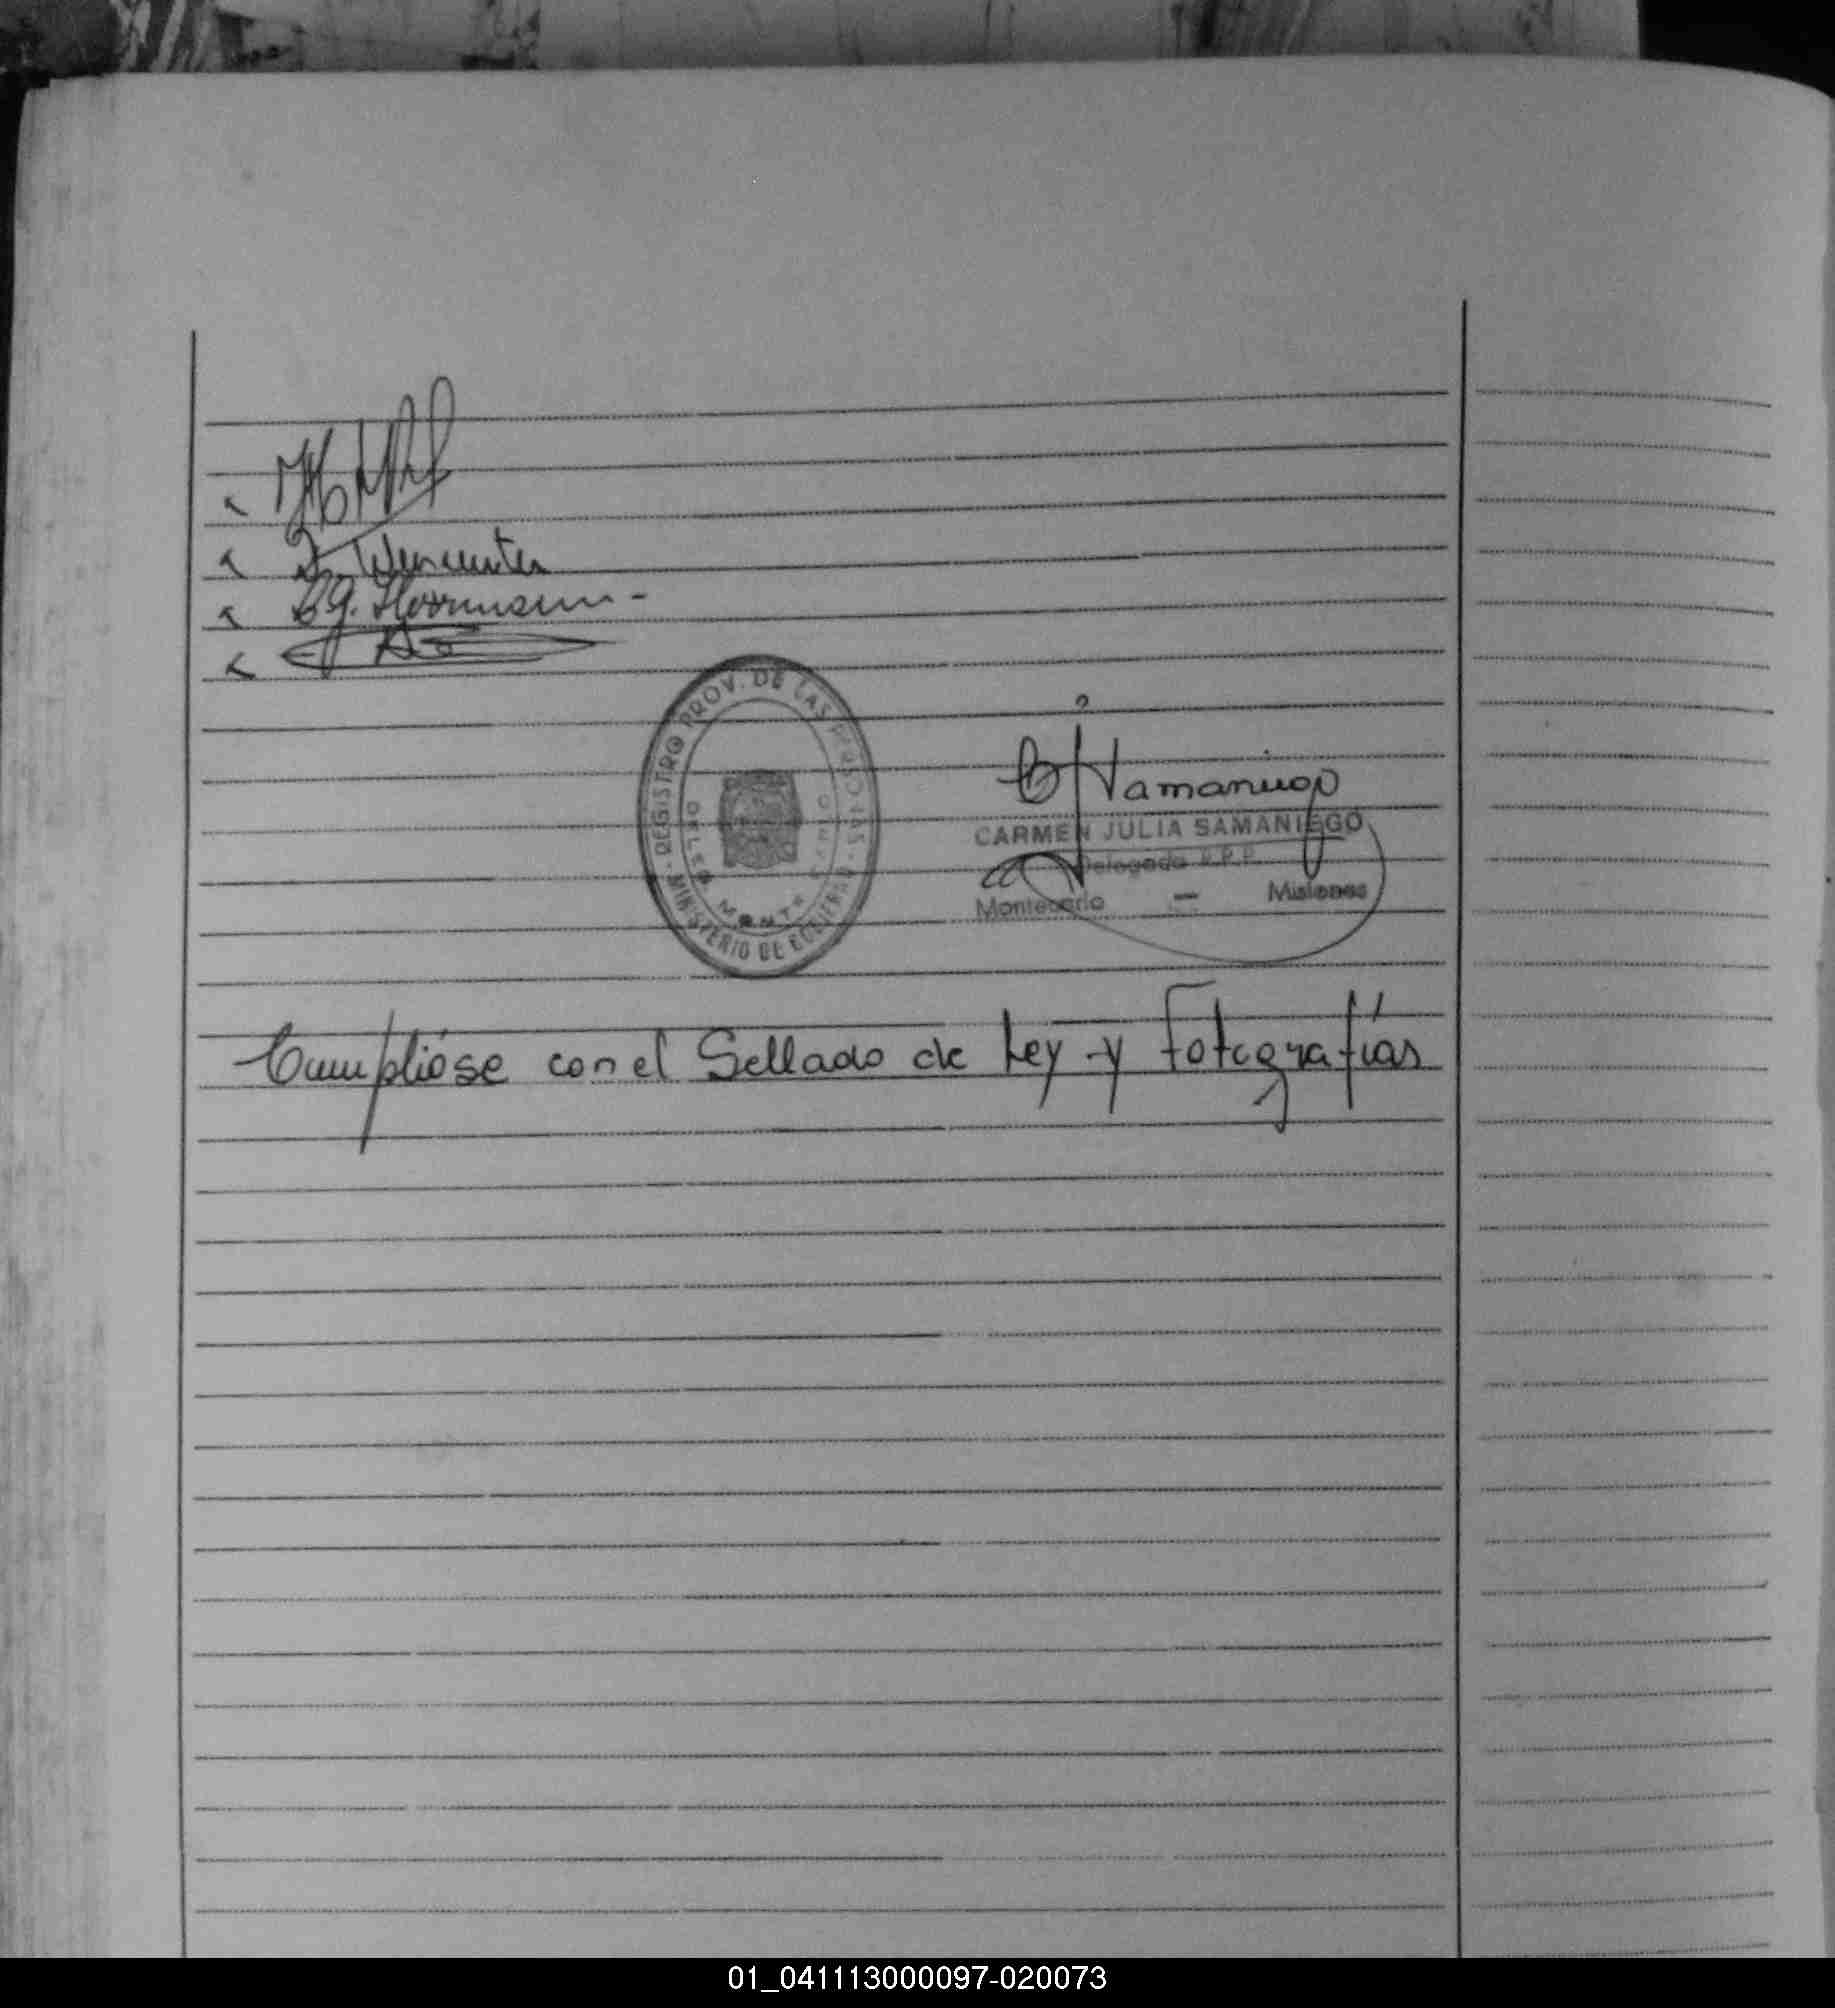 G. Herrmann -
REGISTRO PROV. DE LAS PERSONAS
MINISTERIO DE GOBIERNO
CJSamaniego
CARMEN JULIA SAMANIEGO
Delegada R.P.P.
Montecarlo — Misiones
Cumplióse con el Sellado de Ley y Fotografías
01_041113000097-020073